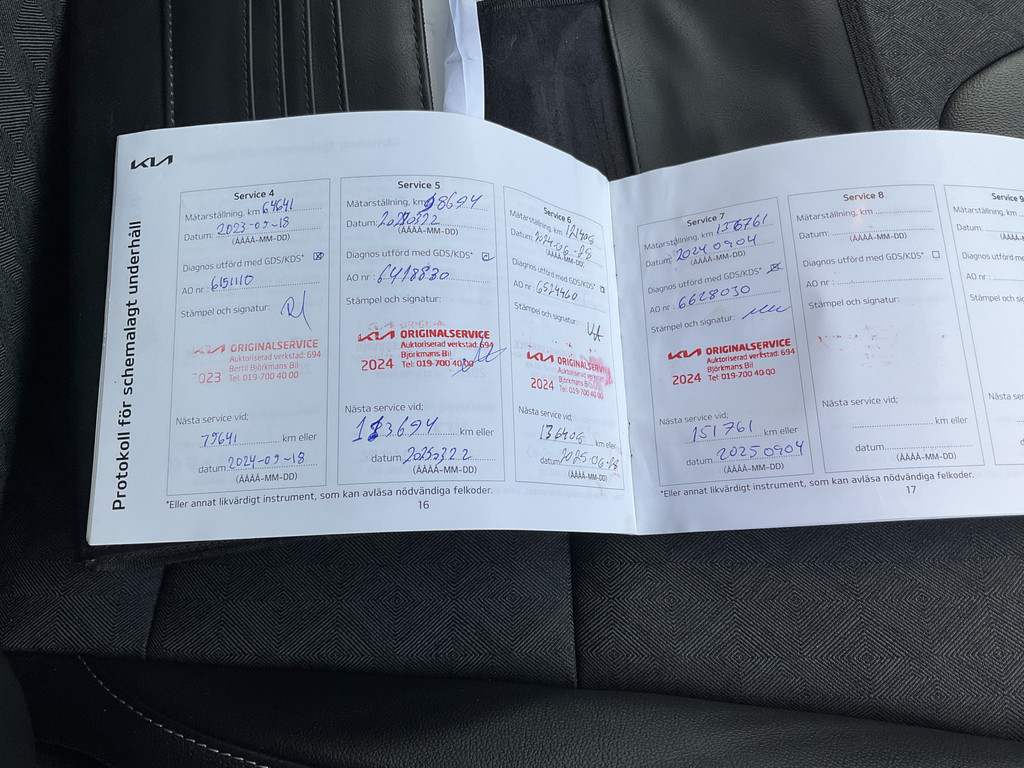 KIA
Protokoll för schemalagt underhåll
Service 4
Mätarställning, km 64641
Datum: 2023-09-18
(ÅÅÅÅ-MM-DD)
Diagnos utförd med GDS/KDS* ☒
AO nr : 6151110
Stämpel och signatur:
KIA ORIGINALSERVICE
Auktoriserad verkstad: 694
Bertil Björkmans Bil
2023 Tel: 019-700 40 00
Nästa service vid;
79641 km eller
datum 2024-09-18
(ÅÅÅÅ-MM-DD)
Service 5
Mätarställning, km 98694
Datum: 20240322
(ÅÅÅÅ-MM-DD)
Diagnos utförd med GDS/KDS* ☑
AO nr : 6418830
Stämpel och signatur:
KIA ORIGINALSERVICE
Auktoriserad verkstad: 694
Björkmans Bil
2024 Tel: 019-700 40 00
Nästa service vid;
113694 km eller
datum 20250322
(ÅÅÅÅ-MM-DD)
Service 6
Mätarställning, km 121405
Datum: 2024-06-28
(ÅÅÅÅ-MM-DD)
Diagnos utförd med GDS/KDS*
AO nr : 6524460
Stämpel och signatur:
KIA ORIGINALSERVICE
Auktoriserad verkstad: 694
Björkmans Bil
2024 Tel: 019-700 40 00
Nästa service vid;
136405 km eller
datum 2025-06-28
(ÅÅÅÅ-MM-DD)
*Eller annat likvärdigt instrument, som kan avläsa nödvändiga felkoder.
16
Service 7
Mätarställning, km 136761
Datum: 20240904
(ÅÅÅÅ-MM-DD)
Diagnos utförd med GDS/KDS* ☒
AO nr : 6628030
Stämpel och signatur:
KIA ORIGINALSERVICE
Auktoriserad verkstad: 694
Björkmans Bil
2024 Tel: 019-700 40 00
Nästa service vid;
151761 km eller
datum 20250904
(ÅÅÅÅ-MM-DD)
Service 8
Mätarställning, km
Datum:
(ÅÅÅÅ-MM-DD)
Diagnos utförd med GDS/KDS* ☐
AO nr :
Stämpel och signatur:
Nästa service vid;
km eller
datum
(ÅÅÅÅ-MM-DD)
Service 9
Mätarställning, km
Datum:
(ÅÅÅÅ-
Diagnos utförd med
AO nr :
Stämpel och
Nästa
datum
*Eller annat likvärdigt instrument, som kan avläsa nödvändiga felkoder.
17